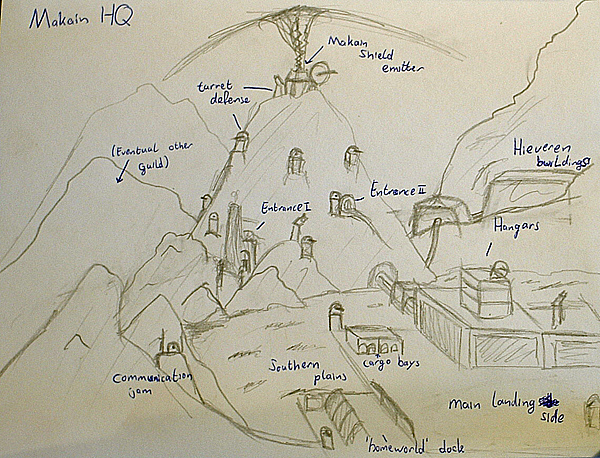 Makain HQ
Makain
Shield
emitter
turret
defense
(Eventual other
guild)
Hieveren
buildings
Entrance II
Entrance I
Hangars
Communication
jam
Southern
plains
cargo bays
Main landing
side
'homeworld' dock